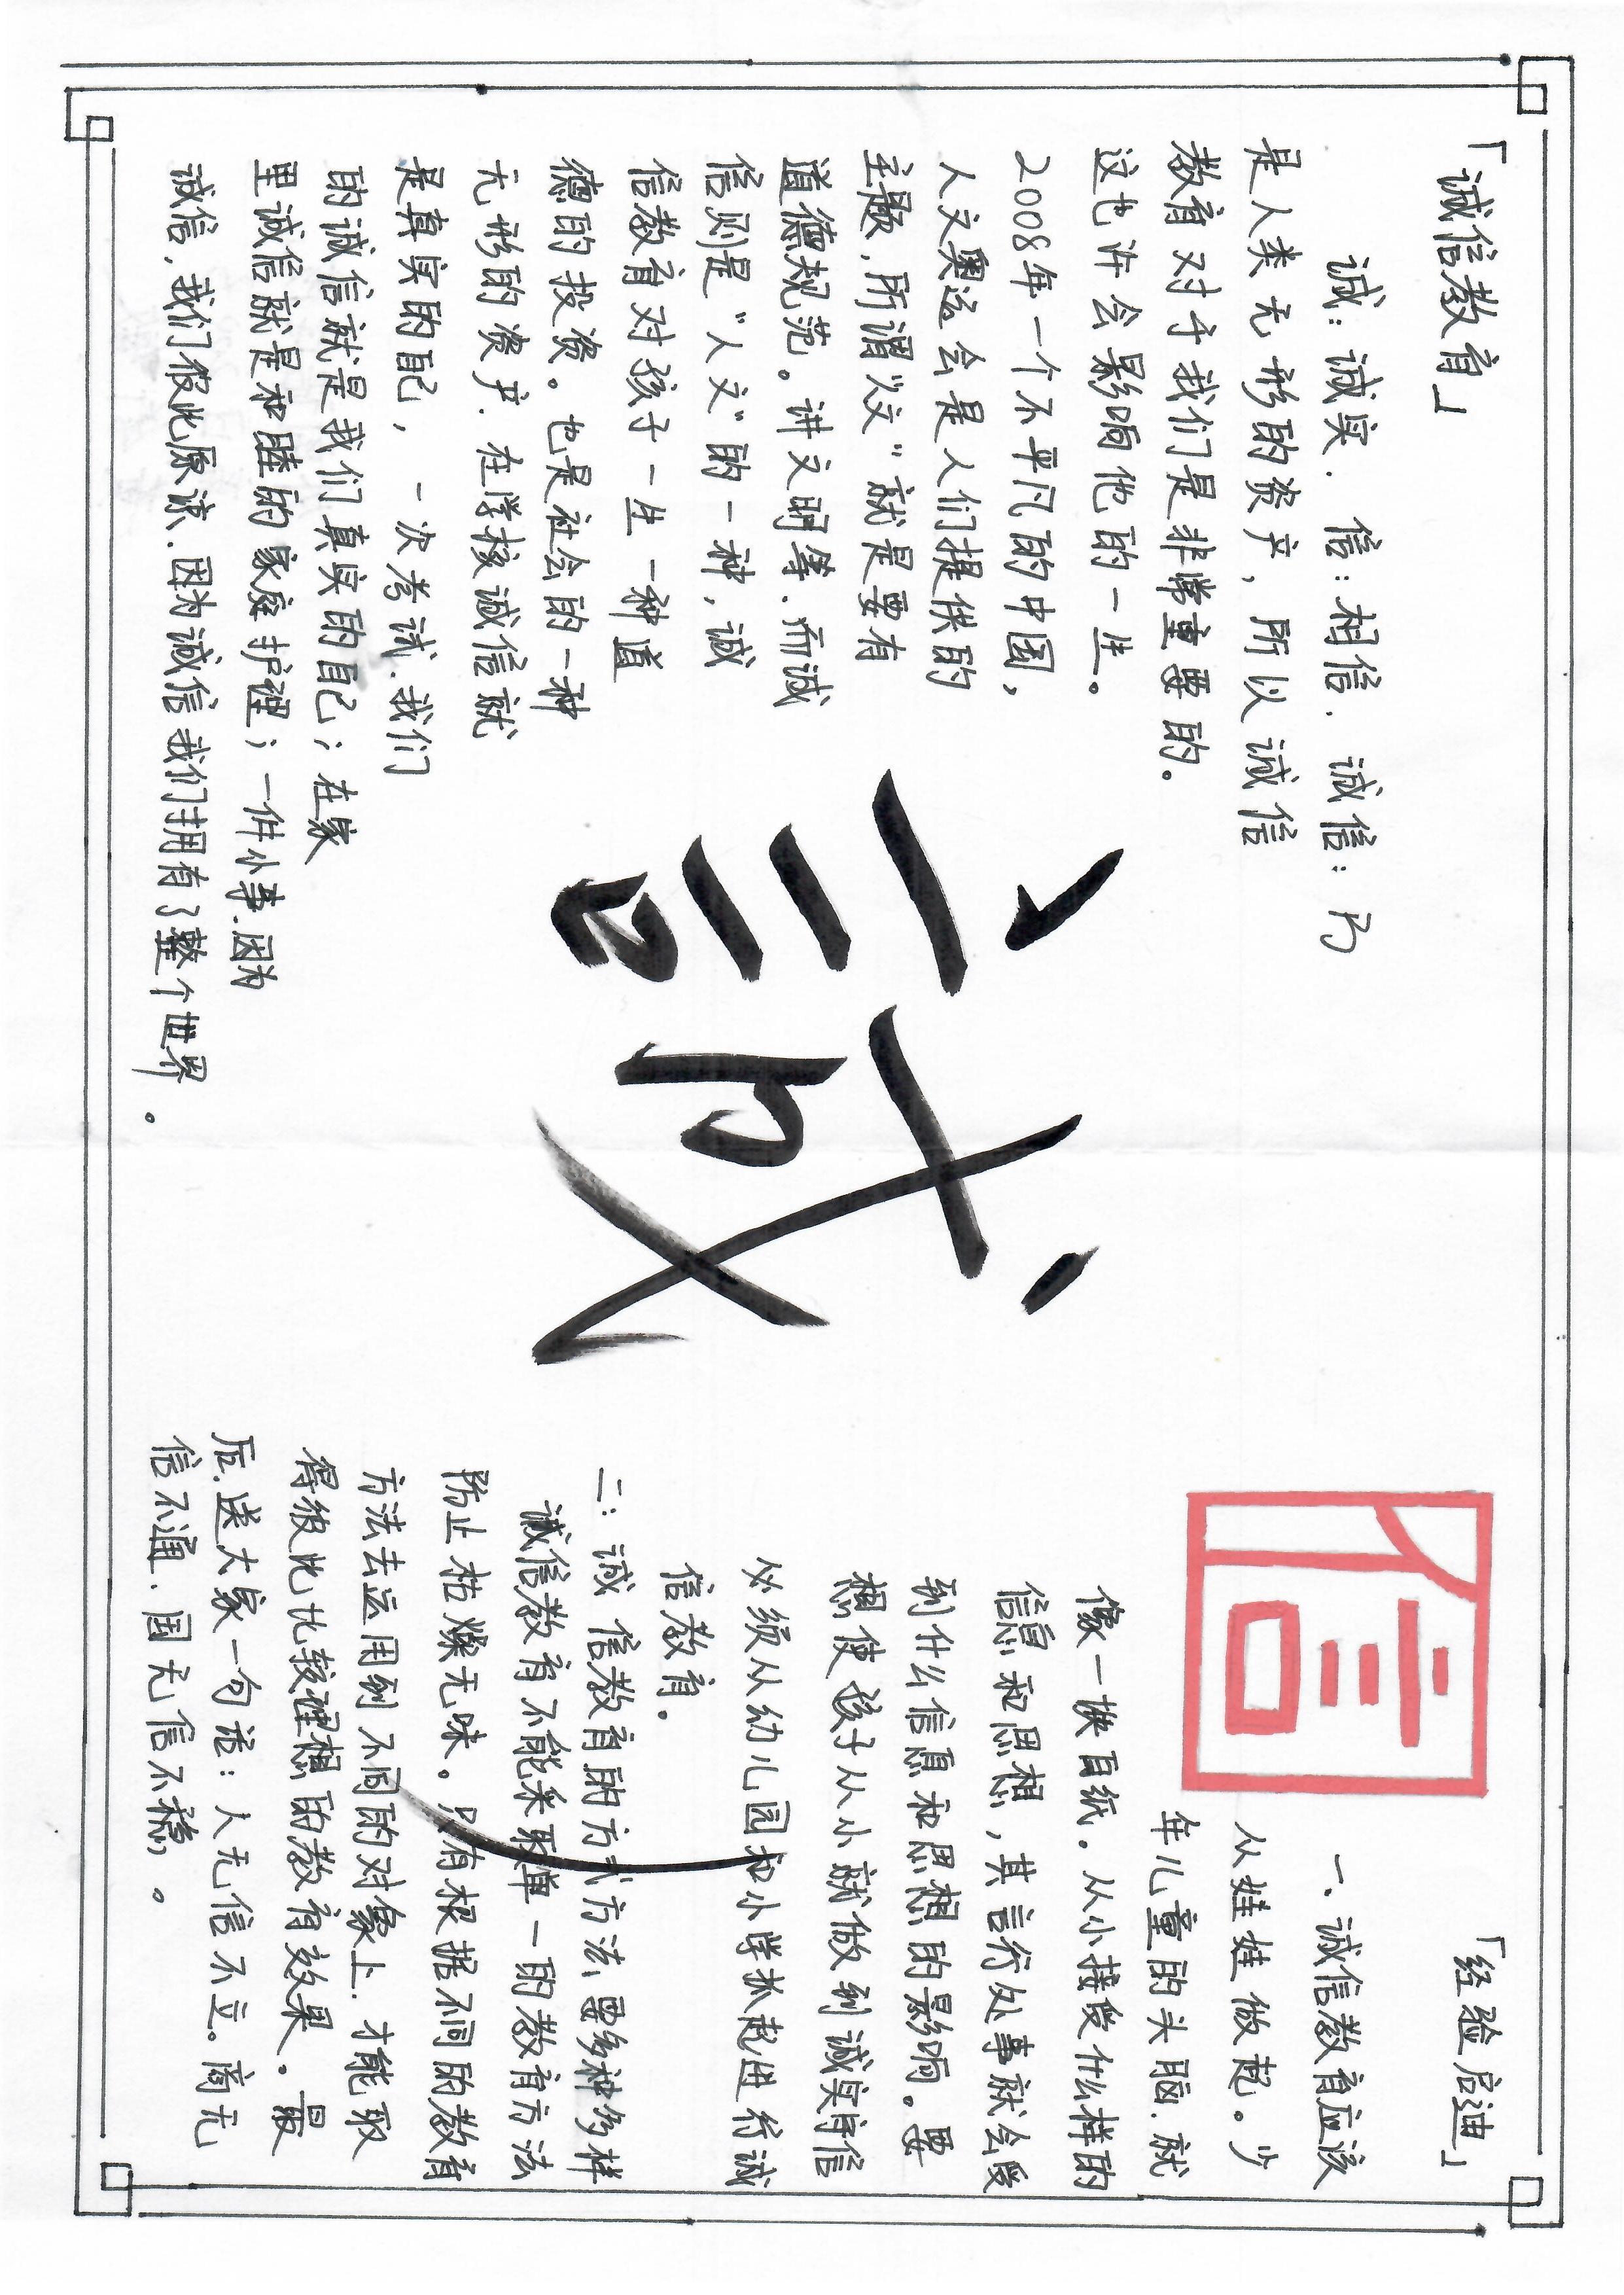 「诚信教育」
诚：诚实．信：相信．诚信：乃
是人类无形的资产，所以诚信
教育对于我们是非常重要的．
这也许会影响他的一生。
2008年一个不平凡的中国，
人文奥运会是人们提供的
主题，所谓“人文”就是要有
道德规范。讲文明等．而诚
信则是“人文”的一种，诚
信教育对孩子一生一种道
德的投资。也是社会的一种
无形的资产．在学校诚信就
是真实的自己，一次考试．我们
的诚信就是我们真实的自己；在家
里诚信就是和睦的家庭护理；一件小事．因为
诚信，我们彼此原谅．因为诚信我们拥有了整个世界。
诚
信
「经验启迪」
一、诚信教育应该
从娃娃做起。少
年儿童的头脑．就
像一块白纸。从小接受什么样的
信息和思想，其言行处事就会受
到什么信息和思想的影响。要
想使孩子从小就做到诚实守信
必须从幼儿园和小学抓起进行诚
信教育。
二：诚信教育的方式方法．要多种多样
诚信教育不能采取单一的教育方法
防止枯燥无味。只有根据不同的教育
方法去运用到不同的对象上．才能取
得彼此比较理想的教育效果。最
后．送大家一句话：人无信不立。商无
信不通．国无信不稳。